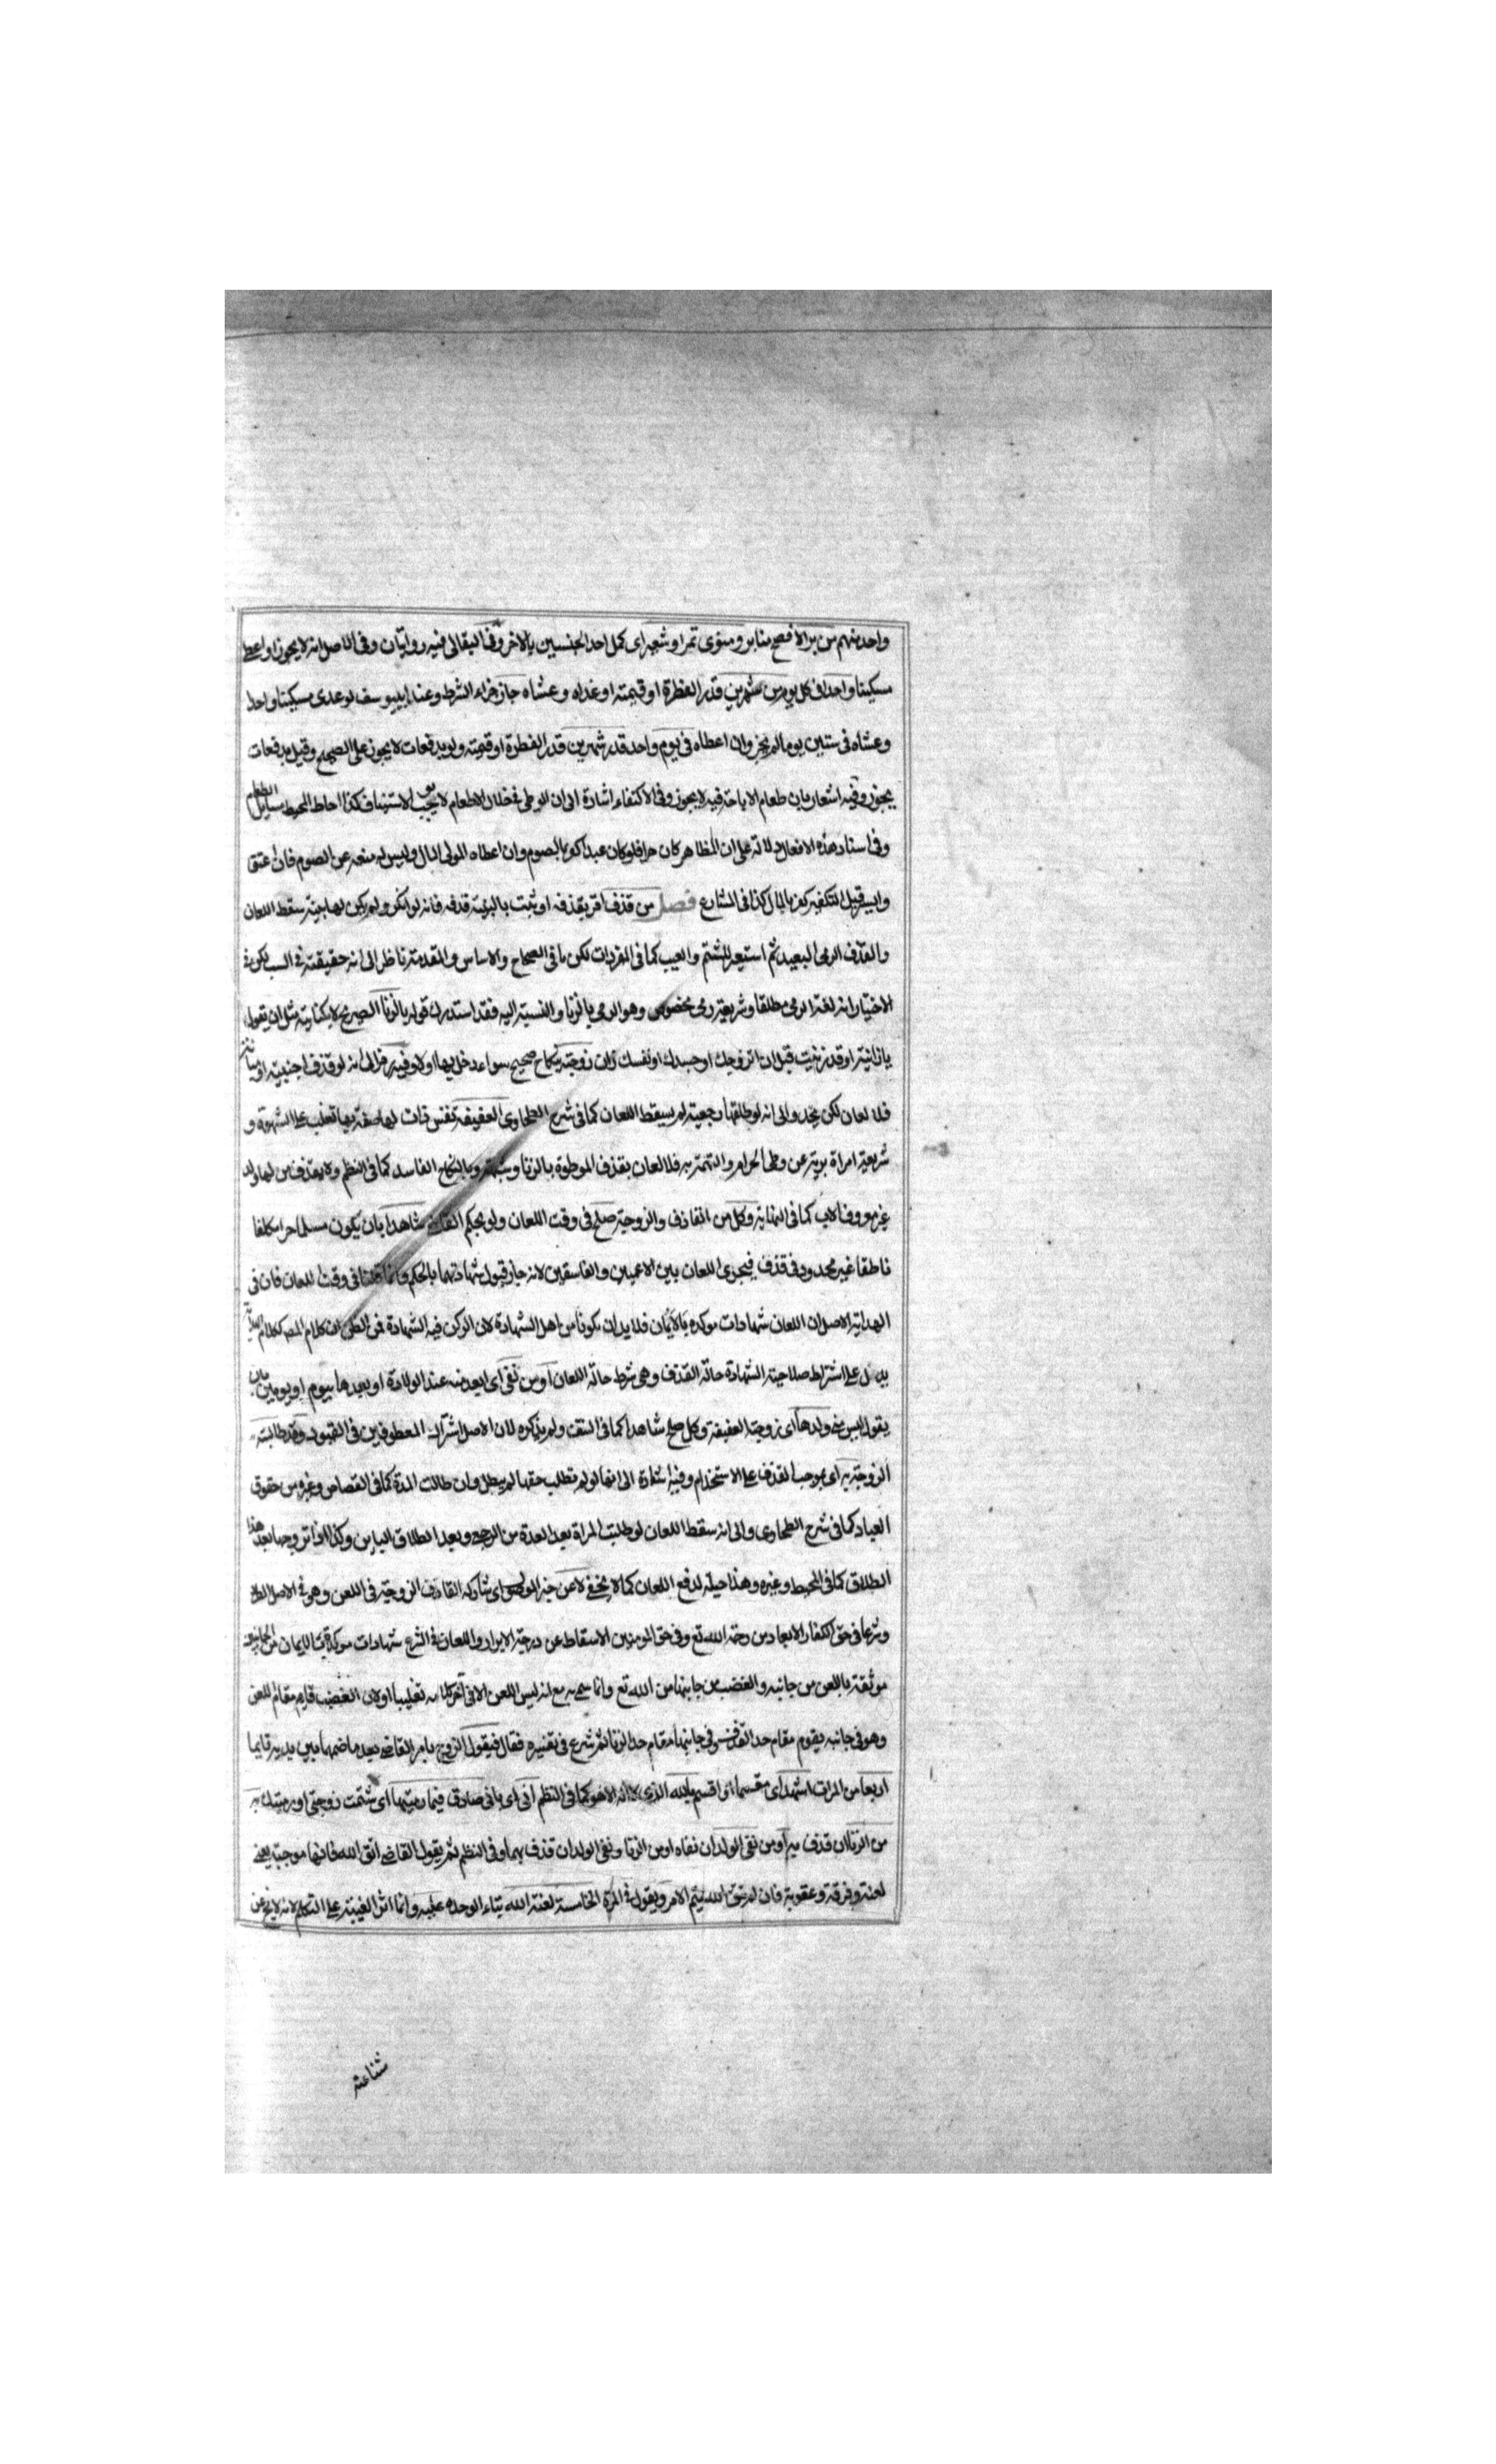 واحد منهم من بر الافصح منا بر ومنوى تمر او شعير اى كمل احد الجنسين بالاخر وفى البقالى فيه روايتان وفى الاصل انه لا يجوز او اعطى
مسكينا واحدا فى كل يوم من شهرين قدر الفطرة او قيمته او غداه وعشاه جاز جزاء الشرط وعند ابييوسف لو غدى مسكينا واحدا
وعشاه فى ستين يوما لم يجز وان اعطاه فى يوم واحد قدر شهرين قدر الفطرة او قيمته ولو بدفعات لا يجوز على الصحيح وقيل بدفعات
يجوز وفيه اشعار بان طعام الاباحة فيه لا يجوز وفى الاكتفاء اشارة الى ان الوطى فى خلال الاطعام لا يوجب الاستيناف كذا احاط المحيط مسايل الطعام
وفى اسناد هذه الافعال دلالة على ان المظاهر كان حرا فلو كان عبدا كفر بالصوم وان اعطاه المولى المال وليس له منعه عن الصوم فان عتق
وايسر قبل التكفير كفر بالمال كذا فى الشارع فصل من قذف اقر بقذفه او ثبت بالبينة قذفه فانه لو انكر ولم يكن لها بينة سقط اللعان
والقذف الرمى البعيد ثم استعير للشتم والعيب كما فى المفردات لكن ما فى الصحاح والاساس والمقدمة ناظر الى انه حقيقته فى السب لكن فى
الاختيار انه لغة الرمى مطلقا وشريعة رمى مخصوص وهو الرمى بالزنا والنسبة اليه فقد استدرك قوله بالزنا الصريح لا بكناية مثل ان يقول
يا زانية او قد زنيت قبل ان اتزوجك او جسدك او نفسك زان زوجته بنكاح صحيح سواء دخل بها اولا وفيه رمز الى انه لو قذف اجنبية او
فلا لعان لكن يحد والى انه لو طلقها رجعية لم يسقط اللعان كما فى شرح الطحاوى العفيفة نفس ذات لها صفة بها تغلب على الشهوة و
شريعة امراة برية عن وطى الحرام والتهمة به فلا لعان بقذف الموطوة بالزنا وشبهته وبالنكاح الفاسد كما فى النظم ولا بقذف من لها ولد
غير معروف الاب كما فى النهاية وكل من القاذف والزوجة صلح فى وقت اللعان ولو بحكم القاضى شاهدا بان يكون مسلما حرا مكلفا
ناطقا غير محدود فى قذف فيجرى اللعان بين الاعميين والفاسقين لانه جاز قبول شهادتهما بالحكم وانما قلنا فى وقت اللعان فان فى
الهداية الاصل ان اللعان شهادات موكده بالايمان فلا بد ان يكونا من اهل الشهادة لان الركن فيه الشهادة فمن الظن ان كلام المصـ ككلام الهداية
يدل على اشتراط صلاحية الشهادة حالة القذف وهى شرط حالة اللعان او من نفى اى ابعد منه عند الولادة او بعدها بيوم او يومين بان
يقول ليس منى ولدها اى زوجته العفيفة وكل صلح شاهدا كما فى النتف ولم يذكره لان الاصل اشتراك المعطوفين فى القيود وقد طالبته
الزوجة به اى بموجب القذف على الاستخدام وفيه اشارة الى انها لو لم تطلب حقها لم يبطل وان طالت المدة كما فى القصاص وغيره من حقوق
العباد كما فى شرح الطحاوى والى انه سقط اللعان لو طلبت المراة بعد العدة من الرجعى وبعد الطلاق الباين وكذا اذا تزوجها بعد هذا
الطلاق كما فى المحيط وغيره وهذا حيلة لدفع اللعان كما لا يخفى لاعن خبر الموصول اى شارك القاذف الزوجة فى اللعن وهو فى الاصل الطرد
وشرعا فى حق الكفار الابعاد من رحمة الله تع وفى حق المومنين الاسقاط عن درجة الابرار واللعان فى الشرع شهادات موكدة بالايمان من الجانبين
موثقة باللعن من جانبه والغضب من جانبها من الله تع وانما سمى به مع انه ليس اللعن الا فى اخر كلامه تغليبا او لان الغضب قايم مقام اللعن
وهو فى جانبه يقوم مقام حد القذف وفى جانبها مقام حد الزنا ثم شرع فى تفسيره فقال فيقول الزوج بامر القاضى بعد ما ضمهما بين يديه قايما
اربعا من المرات اشهد اى مقسما او اقسم بالله الذى لا اله الا هو كما فى النظم انى اى بانى صادق فيما رميتها اى شتمت زوجتى او رميتك به
من الزنا ان قذف به او من نفى الولد ان نفاه او من الزنا ونفى الولد ان قذف بهما وفى النظم ثم يقول القاضى اتق الله فانها موجبة يعنى
لعنة وفرقة وعقوبة فان لم يتق الله يتم الامر ويقول فى المرة الخامسة لعنة الله بتاء الوحده عليه وانما اثر الغيبة على التكلم لانه لا يخ عن
شناعة